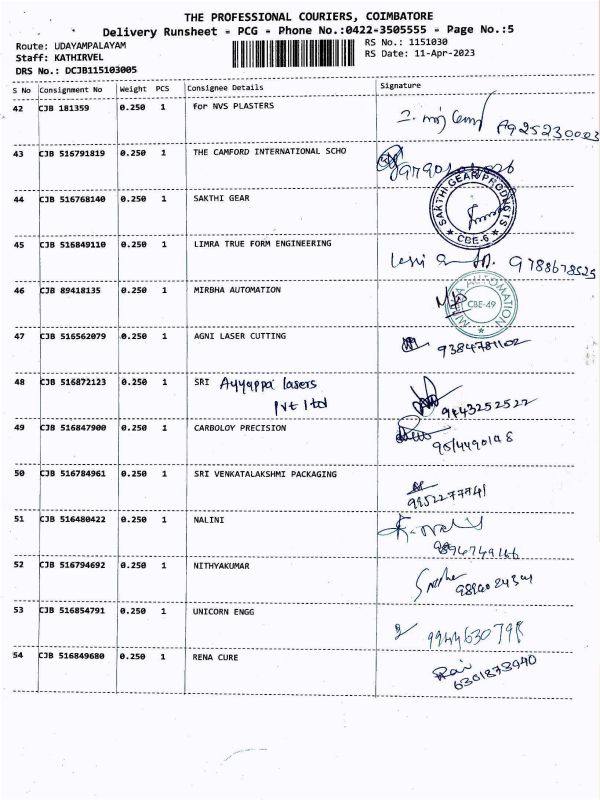 THE PROFESSIONAL COURIERS, COIMBATORE
Delivery Runsheet - PCG - Phone No.:0422-3505555 - Page No.:5
Route: UDAYAMPALAYAM
RS No.: 1151030
Staff: KATHIRVEL
RS Date: 11-Apr-2023
DRS No.: DCJB115103005
S No Consignment No Weight PCS Consignee Details Signature
42 CJB 181359 0.250 1 for NVS PLASTERS
43 CJB 516791819 0.250 1 THE CAMFORD INTERNATIONAL SCHO
44 CJB 516768140 0.250 1 SAKTHI GEAR
SAKTHI GEAR PRODUCTS
CBE-6
45 CJB 516849110 0.250 1 LIMRA TRUE FORM ENGINEERING
9788678525
46 CJB 89418135 0.250 1 MIRBHA AUTOMATION
AUTOMATION
CBE-49
47 CJB 516562079 0.250 1 AGNI LASER CUTTING
9384781102
48 CJB 516872123 0.250 1 SRI Ayyappa lasers
Pvt ltd
9443252522
49 CJB 516847900 0.250 1 CARBOLOY PRECISION
50 CJB 516784961 0.250 1 SRI VENKATALAKSHMI PACKAGING
9952277741
51 CJB 516480422 0.250 1 NALINI
52 CJB 516794692 0.250 1 NITHYAKUMAR
53 CJB 516854791 0.250 1 UNICORN ENGG
54 CJB 516849680 0.250 1 RENA CURE
6301873940